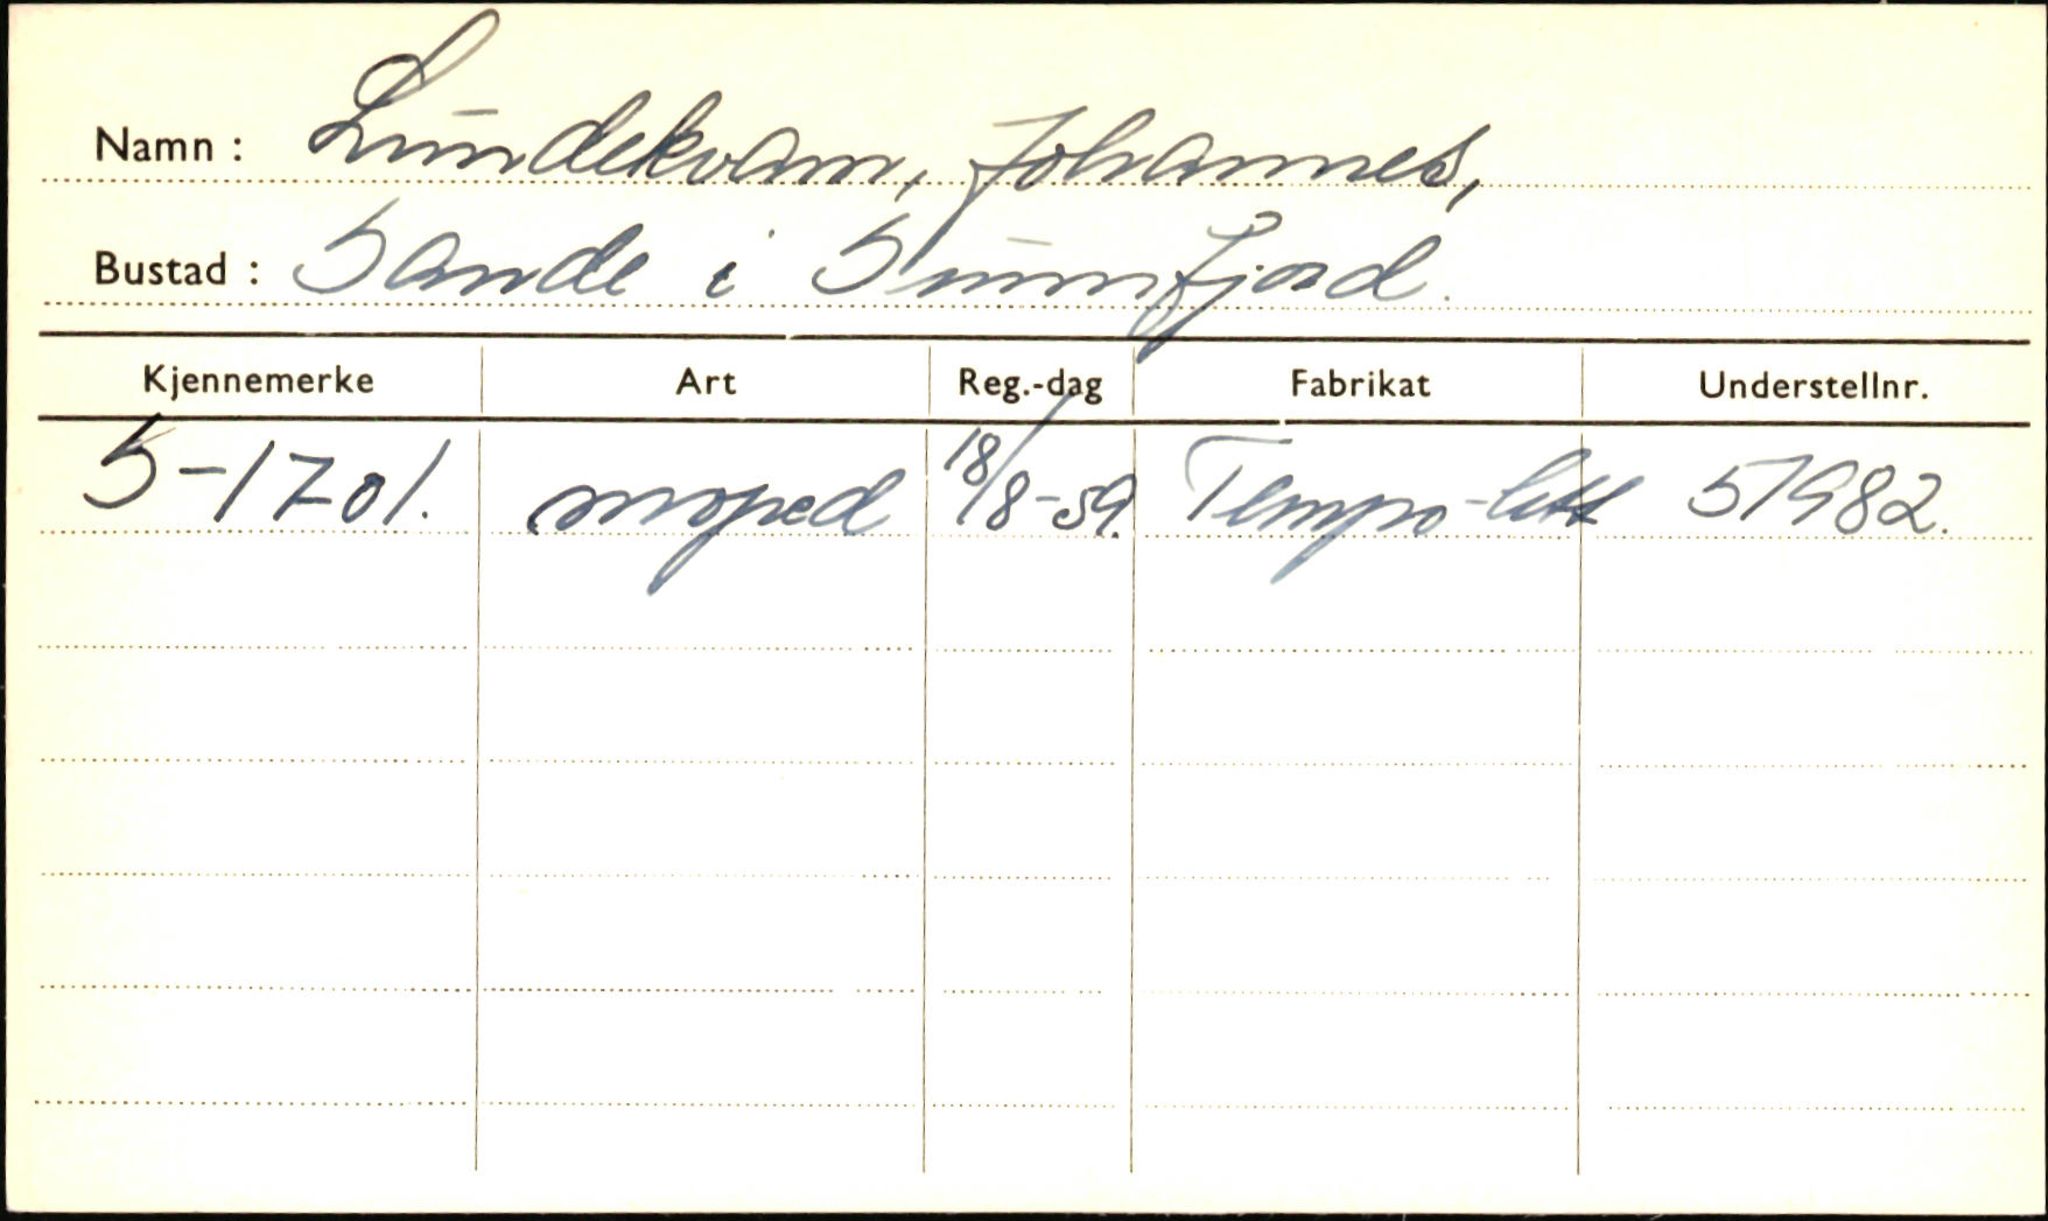 Namn : Lundekvam, Johannes,
Bustad : Sande i Sunnfjord.
Kjennemerke Art Reg.-dag Fabrikat Understellnr.
S-1701. moped 18/8-59. Tempo-lett 57982.